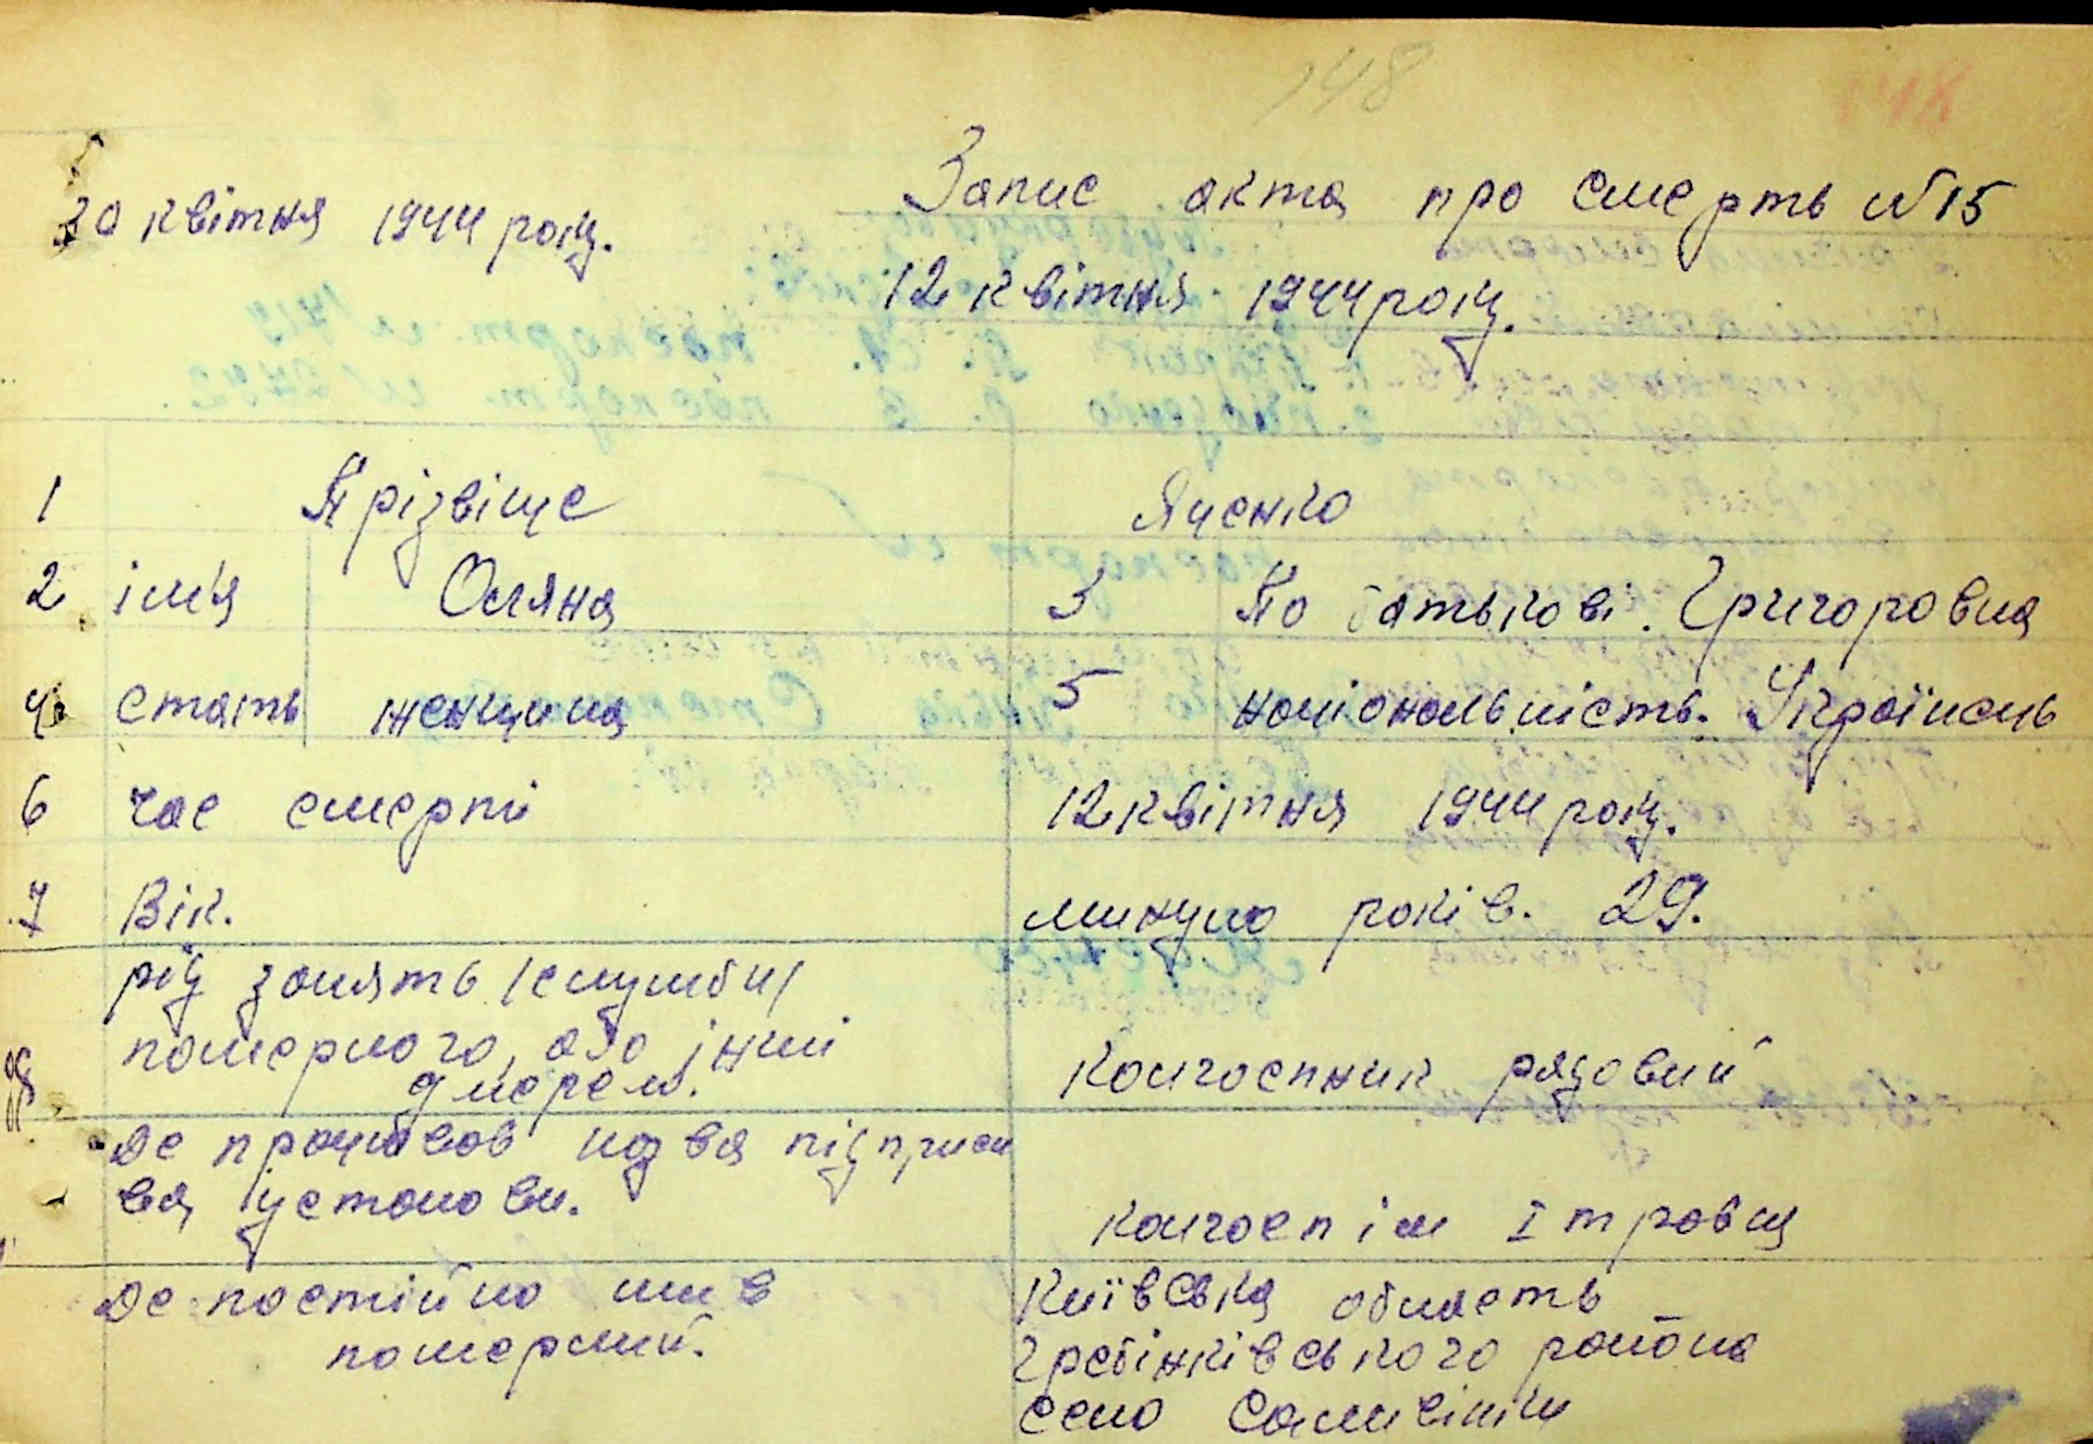 148
30 квітня 1944 року.
Запис акта про смерть №15
12 квітня 1944 року.
1 Прізвіще Яценко
2 імя Оляна 3 По батькові. Григоровна
4 стать женщина 5 національність. Українець
6 час смерті 12 квітня 1944 року.
7 Вік. минуло років. 29.
рід занять /служби/
померлого, або інші
джерел. Колгоспник рядовий
де працював назва підприєм
ва установи.
колгосп ім І травня
де постійно жив
померлий.
Київська область
Гребінківського района
село